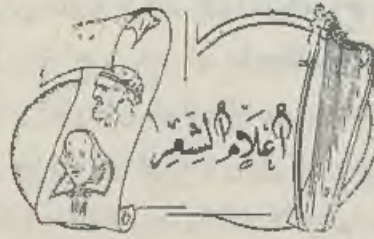 أعلام الشعر